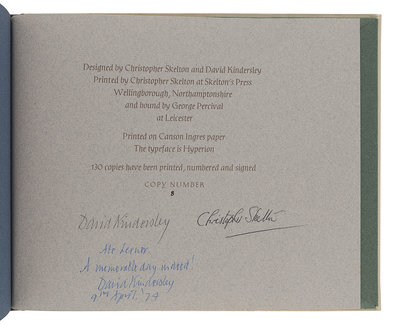 Designed by Christopher Skelton and David Kindersley
Printed by Christopher Skelton at Skelton's Press
Wellingborough, Northamptonshire
and bound by George Percival
at Leicester
Printed on Canson Ingres paper
The typeface is Hyperion
130 copies have been printed, numbered and signed
COPY NUMBER
8
David Kindersley
Christopher Skelton
Abe Lerner
A memorable day indeed!
David Kindersley
9th April. '74